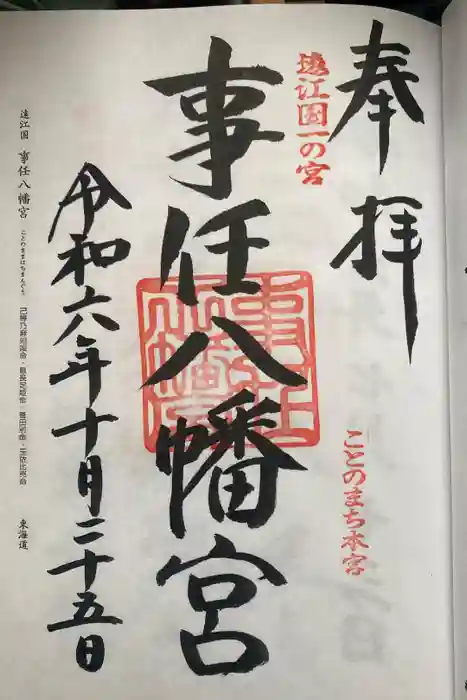 奉拝
遠江国一の宮
ことのまち本宮
事任八幡宮
令和六年十月二十五日
遠江国 事任八幡宮 ことのままはちまんぐう
東海道